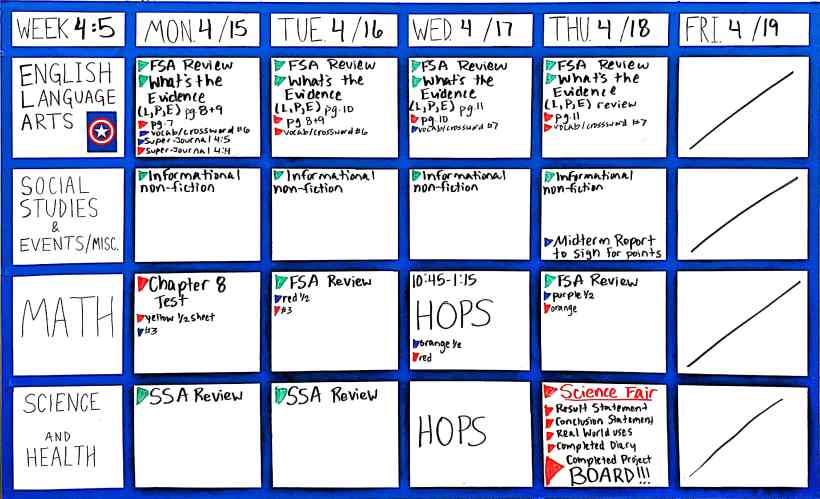 WEEK 4:5
MON. 4/15
TUE. 4/16
WED. 4/17
THU. 4/18
FRI. 4/19
ENGLISH
LANGUAGE
ARTS
FSA Review
What's the
Evidence
(L,P,E) pg 8+9
pg.7
vocab/crossword #6
Super-Journal 4:5
Super-Journal 4:4
FSA Review
What's the
Evidence
(L,P,E) pg.10
pg 8+9
vocab/crossword #6
FSA Review
What's the
Evidence
(L,P,E) pg.11
pg.10
vocab/crossword #7
FSA Review
What's the
Evidence
(L,P,E) review
pg.11
vocab/crossword #7
SOCIAL
STUDIES
&
EVENTS/MISC.
Informational
non-fiction
Informational
non-fiction
Informational
non-fiction
Informational
non-fiction
Midterm Report
to sign for points
MATH
Chapter 8
Test
yellow 1/2 sheet
#3
FSA Review
red 1/2
#3
10:45-1:15
HOPS
orange 1/2
red
FSA Review
purple 1/2
orange
SCIENCE
AND
HEALTH
SSA Review
SSA Review
HOPS
Science Fair
Result Statement
Conclusion Statement
Real World uses
Completed Diary
Completed Project
BOARD!!!